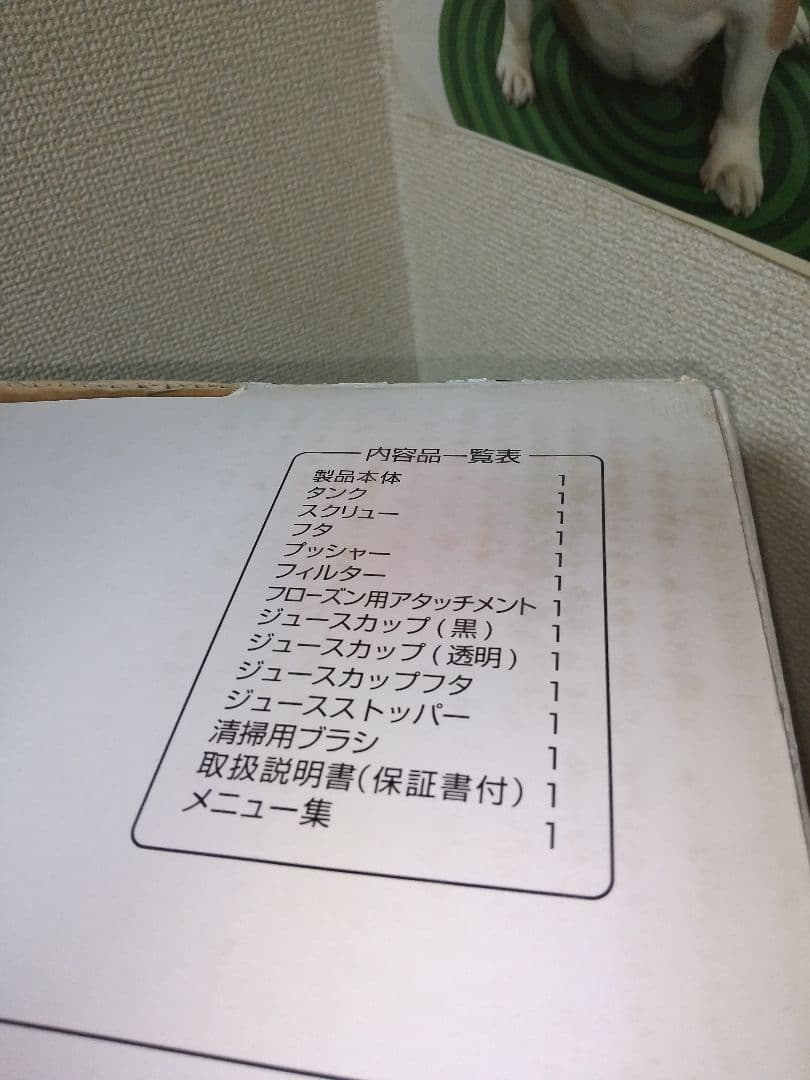 内容品一覧表
製品本体 1
タンク 1
スクリュー 1
フタ 1
プッシャー 1
フィルター 1
フローズン用アタッチメント 1
ジュースカップ(黒) 1
ジュースカップ(透明) 1
ジュースカップフタ 1
ジュースストッパー 1
清掃用ブラシ 1
取扱説明書(保証書付) 1
メニュー集 1